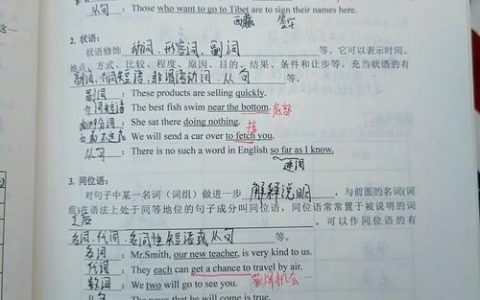 从句：Those who want to go to Tibet are to sign their names here.
西藏 签字
2. 状语：
状语修饰 动词、形容词、副词 等。它可以表示时间、
地点、方式、比较、程度、原因、目的、结果、条件和让步等。充当状语的有
副词、介词短语、非谓语动词、从句 等。
副词：These products are selling quickly.
介词短语：The best fish swim near the bottom. 底部
现在分词：She sat there doing nothing.
接
动词不定式：We will send a car over to fetch you.
从句：There is no such a word in English so far as I know.
连词
3. 同位语：
对句子中某一名词(词组)做进一步 解释说明 ，与前面的名词(词
组)在语法上处于同等地位的句子成分叫同位语，同位语常常置于被说明的词
之后 。可以作同位语的有
名词、代词、名词性短语或从句 等。
名词：Mr.Smith, our new teacher, is very kind to us.
代词：They each can get a chance to travel by air.
数词：We two will go to see you. 机会
从句：The news that he will come is true.